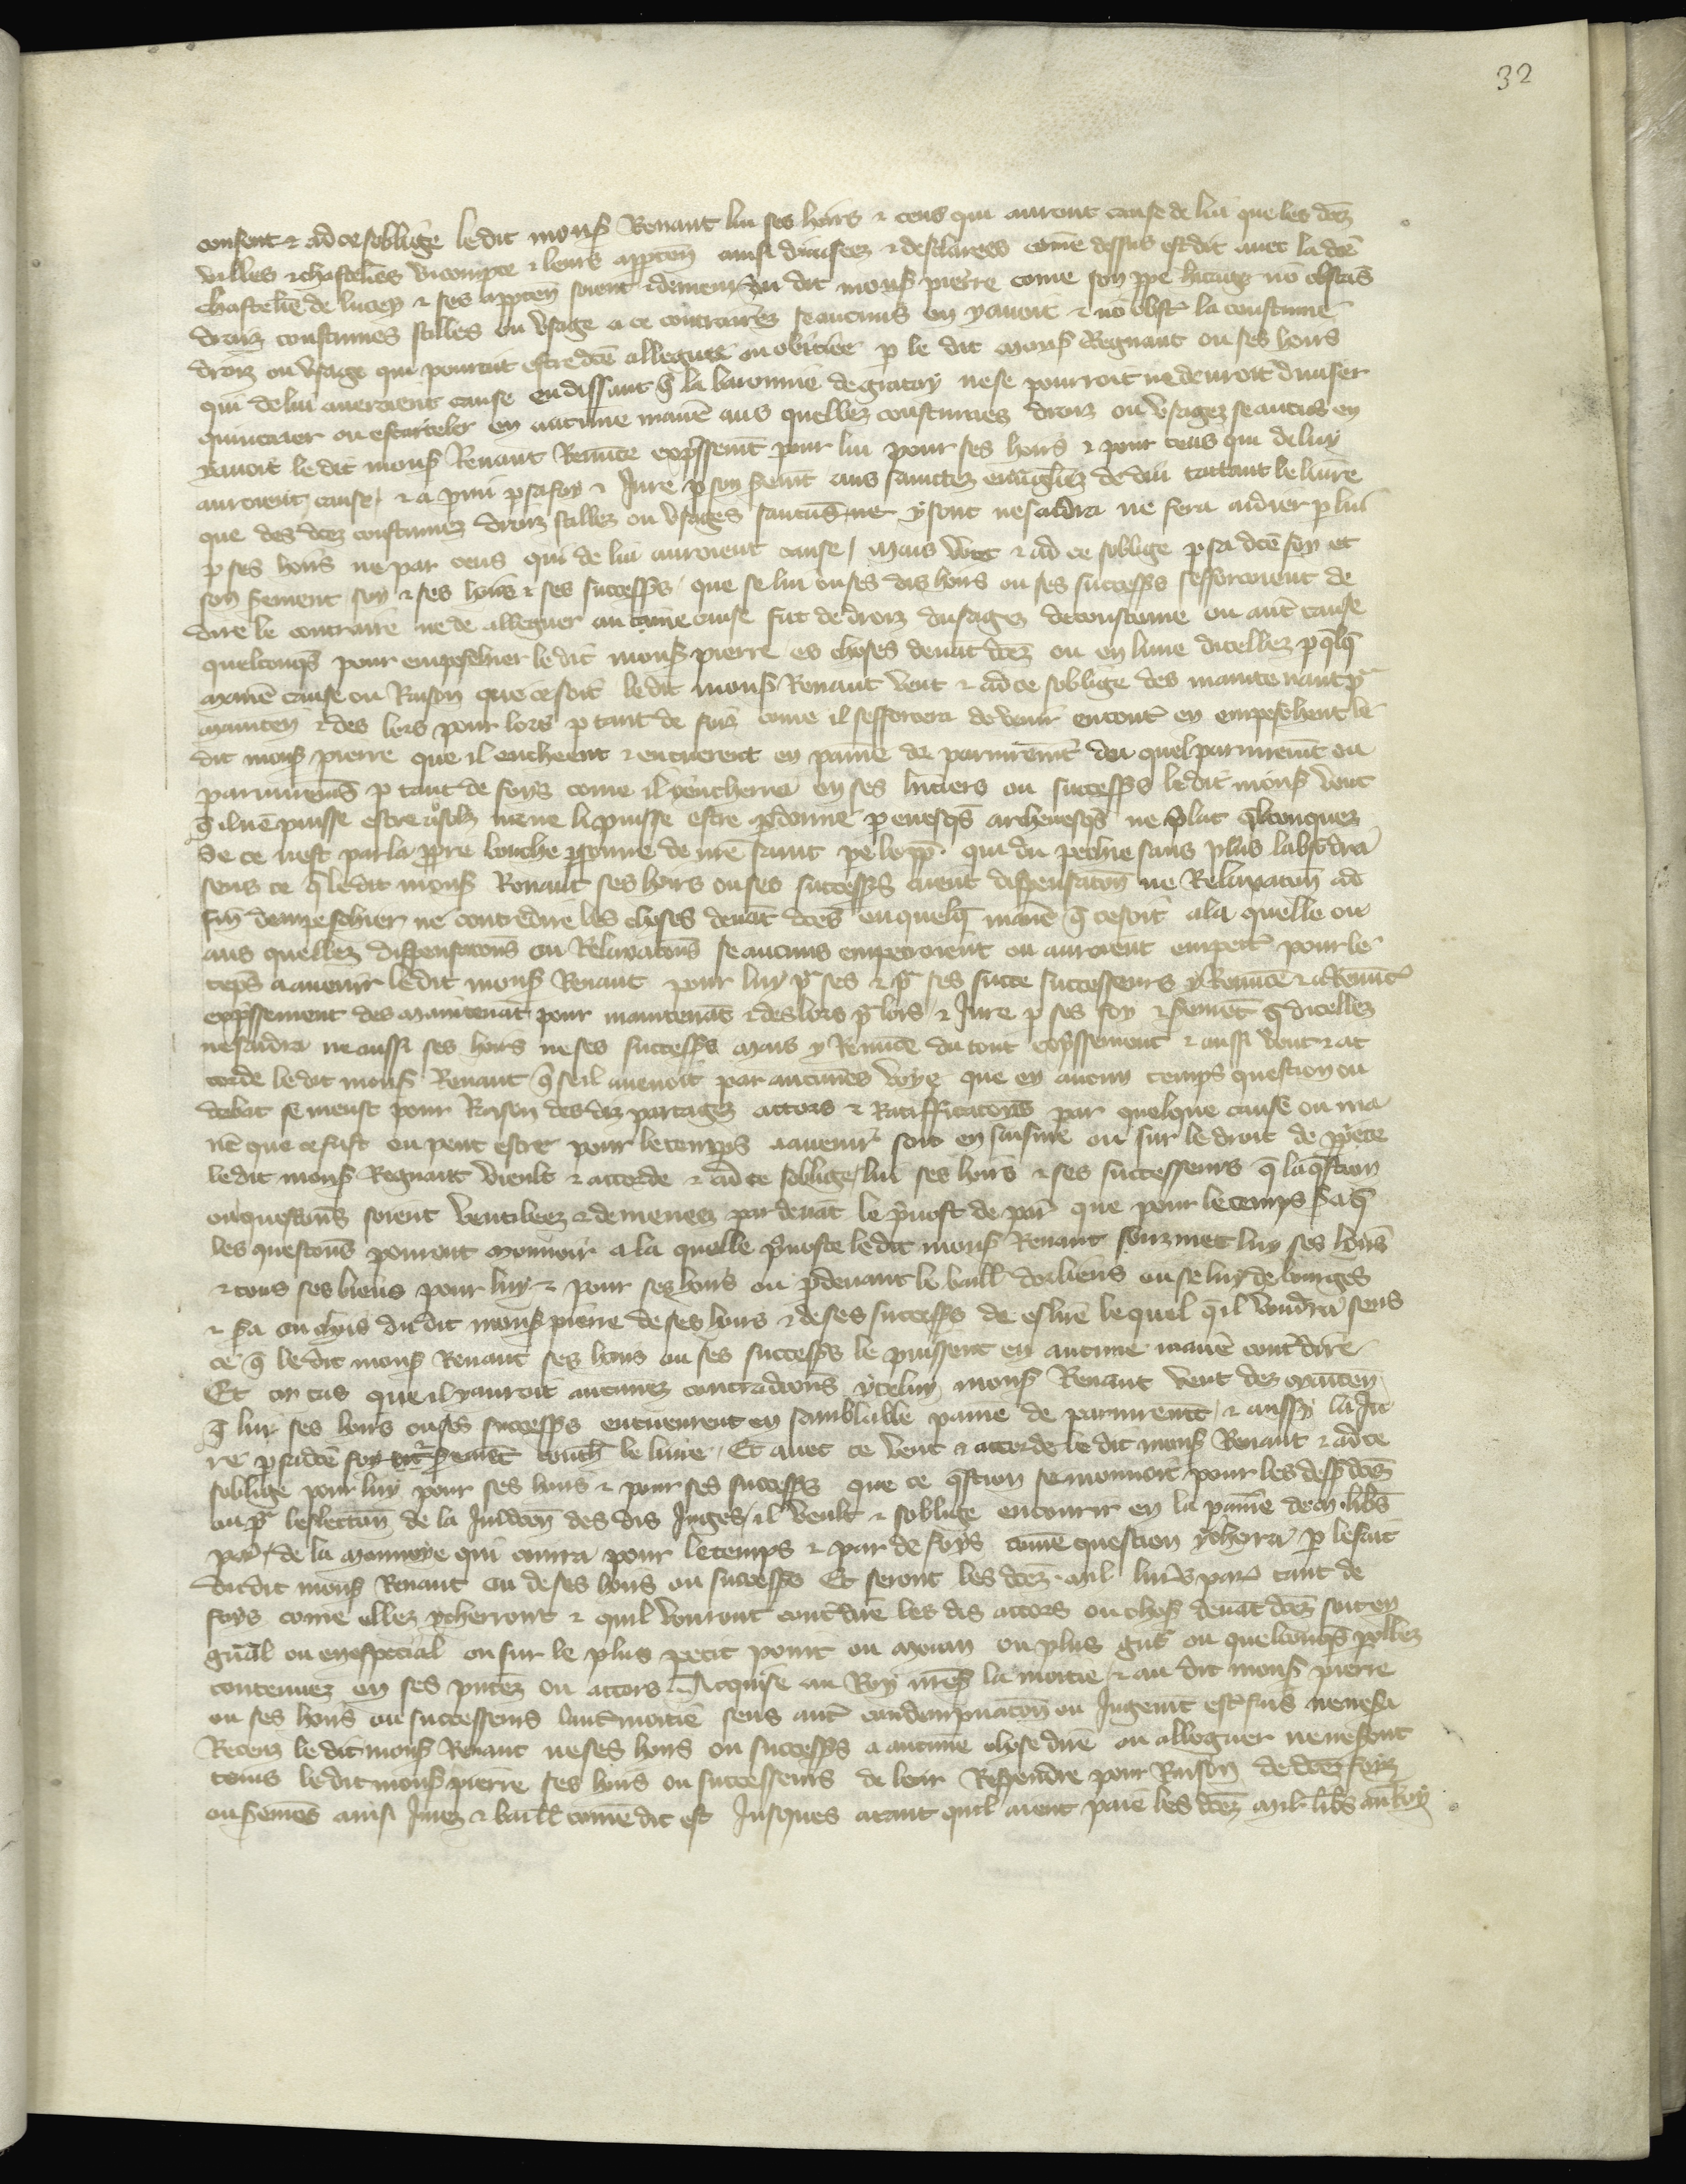 32
consent & ad ce soblige le dit mons Renaut lui ses hoirs & ceus qui auront cause de lui que les dcez
villes & chastelēs vicompte & leurs apptēn ainsi diuisees & desclarees cōme dessus est dit auec la dcē
chastelē de lucey & ses apptēn soient & demeurēt au dit mons pierre cōme son ppe heritage nō obstās
droiz coustumes stilles ou vsage a ce contraires se aucuns en y auoit & nō obst la coustume
droiz ou vsage qui pouroit estre dcē alleguee ou obiciee p le dit mons Regnaut ou ses hoirs
qui de lui aueroient cause en dissant q̄ la baronnie de gracoy ne se pourroit ne deuroit diuiser
quinteier ou escarteler en aucune maniē aus quelles coustumes droiz ou vsagez se aucūs en
y auoit le dit mons Renaut Renūce expssemt pour lui pour ses hoirs & pour ceus qui de luy
auroient cause, & a pmi p sa foy & Jure p son sermt aus sainctez euāgilez de dieu tattant le liure
que des dcez coustumez droiz stillez ou vsages saucūs ne y sont ne saidra ne fera aidier p lui
p ses hoirs ne par ceus qui de lui auroient cause / mais veut & ad ce soblige p sa dcē foy et
son sement soy & ses hoirs & ses successs que se lui ou ses dis hoirs ou ses successs sefforcoient de
dire le contraire ne de alleguer aucune cause fut de droiz dusagez de coustume ou autre cause
quelconqs pour empeschier le dit mons pierre es choses deuāt dcez ou en lune dicellez p qlq
maniē cause ou Raison que ce soit le dit mons Renaut veut & ad ce soblige des maintenant pr
mainten & des lors pour lors p tant de foiz cōme il sefforcera de venir encontr en empeschent le
dit mons pierre que il encheent & encuerent en paine de pariuremt du quel pariuremt ou
pariuremēs p tant de foys cōme il y encherra ou ses heritiers ou successs le dit mons veut
q̄ il nē puisse estre asolz ne ne li puisse estre pdonne p euesqs archeuesqs ne plat qlconquez
se ce nest par la ppre bouche psonne de nrē saint pe le pp. qui du pechie sans plus labsodra
sens ce q̄ le dit mons Renaut ses hoirs ou ses successs aient dispensatōn ne Relaxatōn ad
fin dempeschier ne contredire les choses deuāt dcēs en quelq maniē q̄ ce soit a la quelle ou
aus quellez dispensatons ou Relaxatons se aucuns empetroient ou auroient empetr pour le
teps a auenir le dit mons Renaut pour luy pr ses & pr ses succe successeurs y Renūce & a Renūct
expssement des maintenāt pour maintenāt & des lors pr lors & Jure p ses foy & sermēt q̄ dicellez
ne saidra ne aussi ses hoirs ne ses successs mais y Renūce du tout expssement & aussi veut & ac
corde le dit mons Renaut q̄ se il auenoit par aucunes voye que en aucun temps question ou
debat se meust pour Raison des diz partagez accors & Ratifficatons par quelque cause ou ma
niē que ce fust ou peut estre pour le temps a auenir soit en saisine ou sur le droit de pprete
le dit mons Regnaut vieult & accorde & ad ce soblige lui ses hoirs & ses successeurs q̄ la q̄stion
ou questions soient ventileez & demenez par deuāt le puost de par que pour le temps sa q̄
les questons pouront mouuoir a la quelle puoste le dit mons Renaut souzmet luy ses hoirs
& tous ses biens pour luy & pour ses hoirs ou pdeuant le baill dorliens ou se luy de bourges
& sa ou choiz du dit mons pierre de ses hoirs & de ses successs de eslirē le quel q̄ il voudra sens
ce q̄ le dit mons Renaut ses hoirs ou ses successs le puissent en aucune maniē cont dire
Et en cas que il y auroit aucunez contradcōns yceluy mons Renaut veut dez maintēn
q̄ lui ses hoirs ou ses successs encueurent en semblable paine de pariuremēt / & aussy la Ju
re p sa dcē foy sermēt touch le liure. Et auec ce veut & accorde le dit mons Renaut & ad ce
soblige pour luy pour ses hoirs & pour ses successs que ce q̄stion se mouuoit pour les dess dcēs
ou pr leslection de la Juridcōn des dis Juges / il veult & soblige encourir en la paine de m. libs
par. de la monnoye qui courra pour le temps & par de foys cōme question y cherra p le fait
du dit mons Renaut ou de ses hoirs ou successs Et seront les dcez mil liurs par tant de
foys cōme ellez y cherront & quil vouront cont dire les dis accors ou chos deuāt dcez soit en
gn̄al ou en espicial ou sur le plus petit point ou moien ou plus gnt ou quelconqs pollez
contenuez en ses pntez ou accors Acquise au Roy nres la moitie & au dit mons pierre
ou ses hoirs ou successeurs lautr moitie sens autr condampnatōn ou Jugemt estre fais ne ne sa
Receuz le dit mons Renaut ne ses hoirs ou successs a aucune chose dire ou alleguer ne ne sont
tenus le dit mons pierre ses hoirs ou successeurs de leur Respondre pour Raison de dcēs foyz
ou sermēs ainsi Jurez & baill cōme dit est Jusques atant quil aient paie les dcez mil libs au Roy